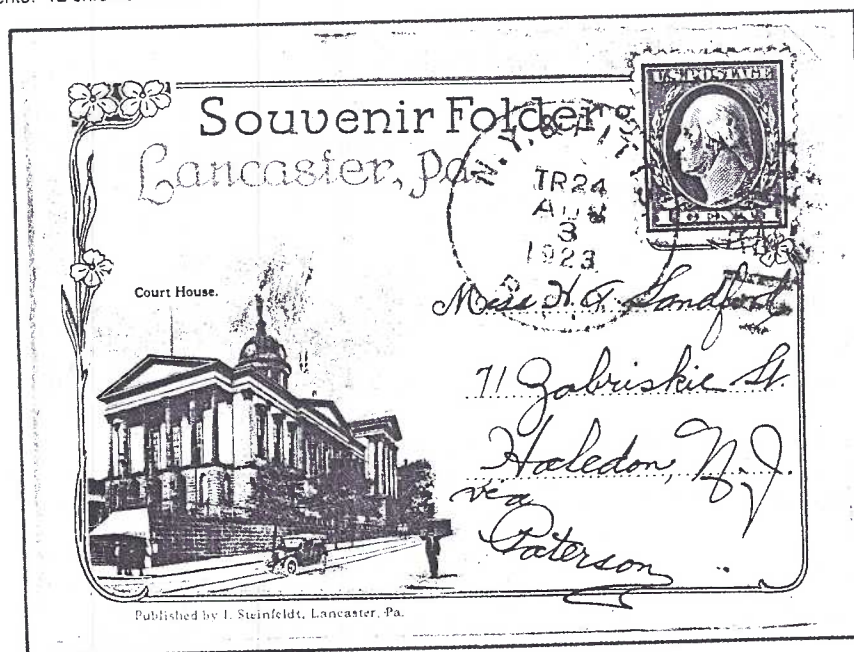 Souvenir Folder
Lancaster, Pa.
U.S. POSTAGE
1 CENT 1
N.Y. &
TR 24
AUG
3
1923
Court House.
Miss H. A. Sandford
71 Zabriskie St.
Haledon, N.J.
via
Paterson
Published by I. Steinfeldt, Lancaster, Pa.